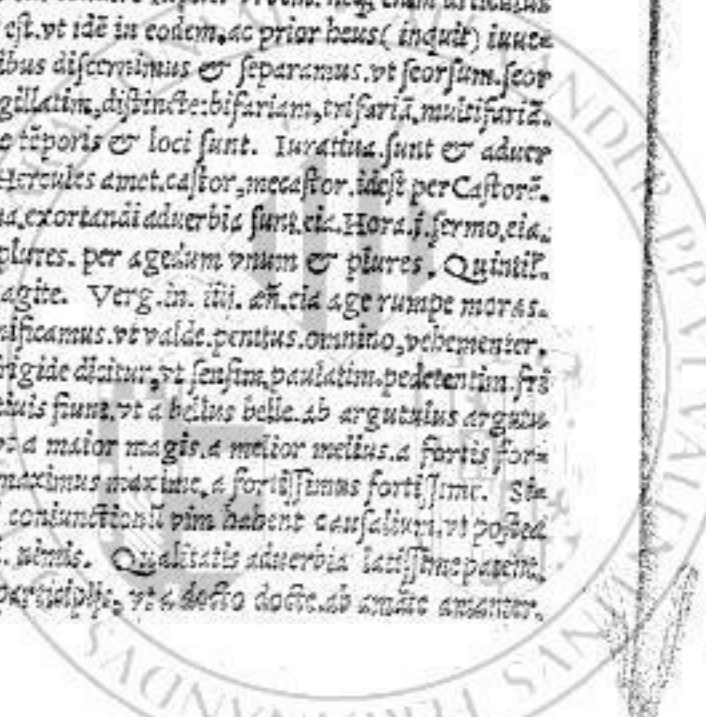 est.vt idē in eodem,ac prior heus( inquit) iuue=
ibus discernimus & separamus.vt seorsum.seor
gillatim,distincte:bifariam,trifariā,multifariā.
e tēporis & loci sunt. Iuratiua.sunt & aduer
Hercules amet.castor,mecastor.idest per Castorē.
a.exortandi aduerbia sunt.eia.Hora.j.sermo,eia.
plures. per agedum vnum & plures. Quintil.
agite. Verg.in. iiij. æñ.eia age rumpe moras.
nificamus.vt valde.penitus.omnino,vehementer.
rigide dicitur,vt sensim,paulatim.pedetentim.
tiuis fiunt.vt a bellus belle.ab argutulus argutu
a maior magis.a melior melius.a fortis for=
maximus maxime.a fortissimus fortissime. Si=
coniunctionū vim habent causalium.vt postea
nimis. Qualitatis aduerbia latissime patent.
participijs, vt a docto docte.ab amāte amanter.